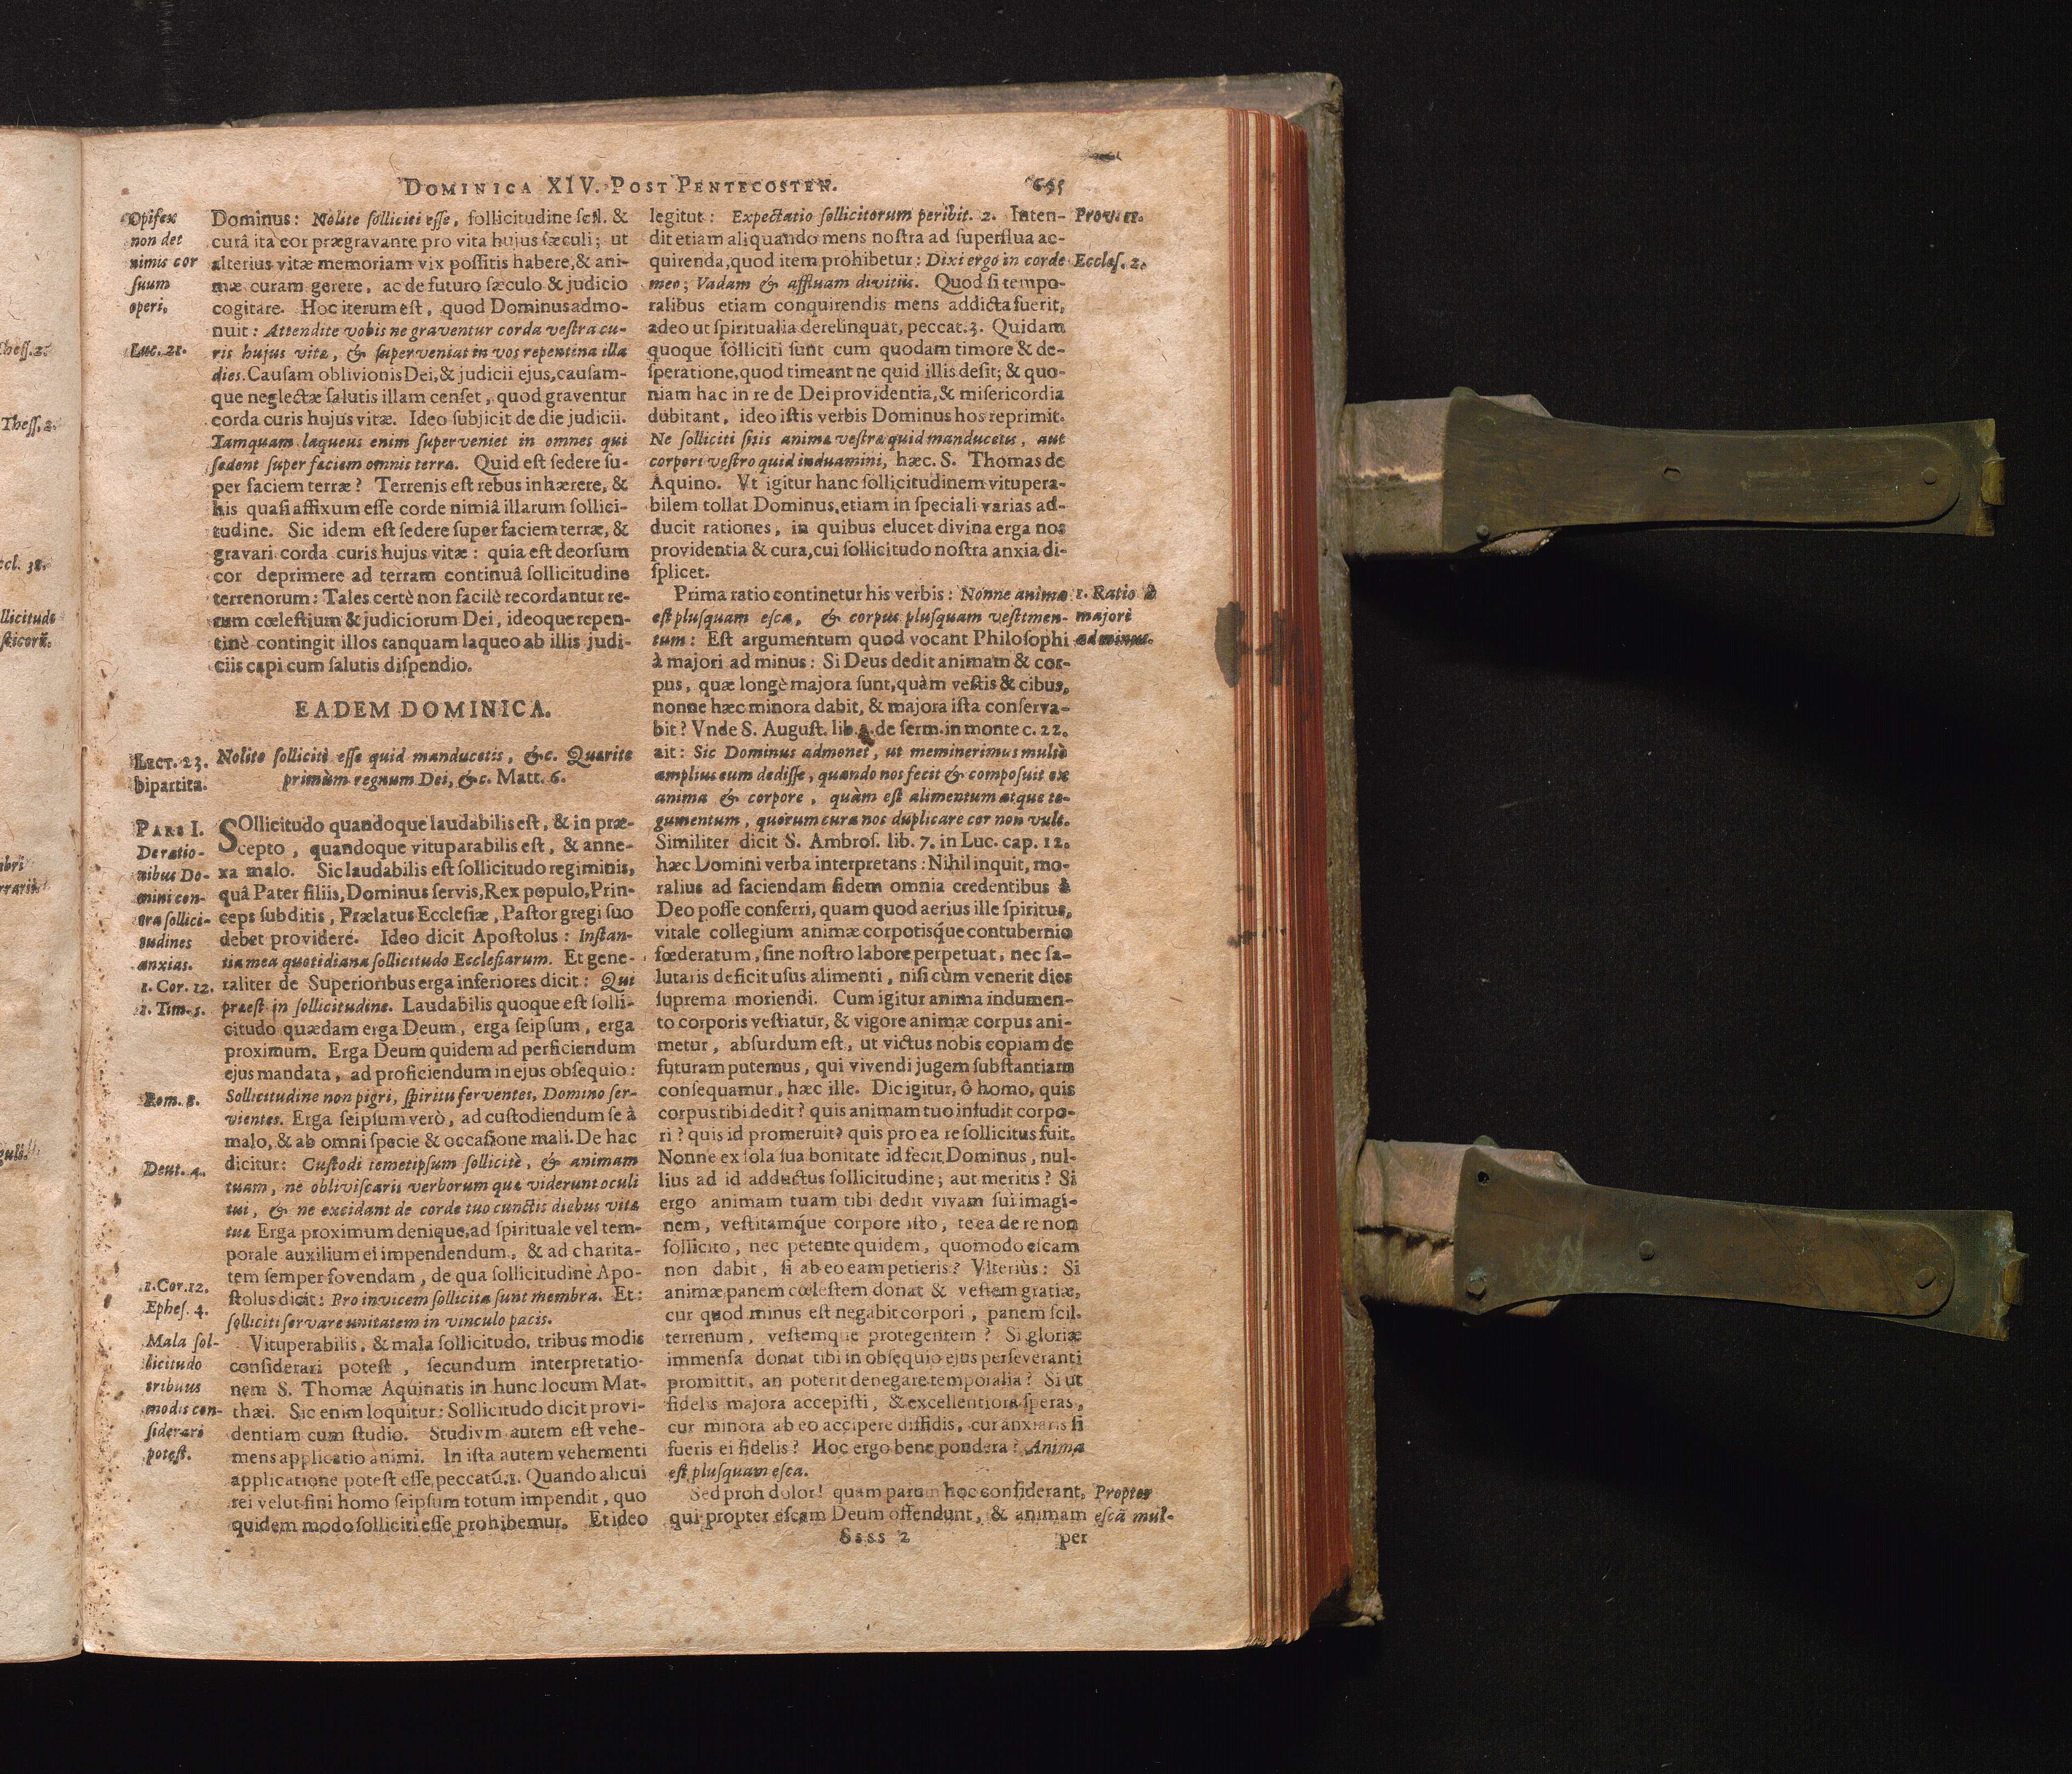 DOMINICA XIV. POST PENTECOSTEN.
Opifex
non det
nimis cor
ſuum
operi.
Luc. 21.
Dominus: Nolite ſolliciti eſſe, ſollicitudine ſcil. &
curâ ita cor prægravante pro vita hujus ſæculi; ut
alterius vitæ memoriam vix poſſitis habere, & ani-
mæ curam gerere, ac de futuro ſæculo & judicio
cogitare. Hoc iterum eſt, quod Dominus admo-
nuit: Attendite vobis ne graventur corda veſtra cu-
ris hujus vitæ, & ſuperveniat in vos repentina illa
dies. Cauſam oblivionis Dei, & judicii ejus, cauſam-
que neglectæ ſalutis illam cenſet, quod graventur
corda curis hujus vitæ. Ideo ſubjicit de die judicii.
Tamquam laqueus enim ſuperveniet in omnes qui
ſedent ſuper faciem omnis terræ. Quid eſt ſedere ſu-
per faciem terræ? Terrenis eſt rebus inhærere, &
his quaſi affixum eſſe corde nimiâ illarum ſollici-
tudine. Sic idem eſt ſedere ſuper faciem terræ, &
gravari corda curis hujus vitæ: quia eſt deorſum
cor deprimere ad terram continuâ ſollicitudine
terrenorum: Tales certè non facilè recordantur re-
rum cœleſtium & judiciorum Dei, ideoque repen-
tinè contingit illos tanquam laqueo ab illis judi-
ciis capi cum ſalutis diſpendio.
EADEM DOMINICA.
LECT. 23.
bipartita.
Nolite ſollicitè eſſe quid manducetis, &c. Quærite
primùm regnum Dei, &c. Matt. 6.
PARS I.
De ratio-
nibus Do-
mini con-
tra ſollici-
tudines
anxias.
1. Cor. 12.
1. Tim. 5.
Rom. 8.
Deut. 4.
1. Cor. 12.
Epheſ. 4.
Mala ſol-
licitudo
tribuus
modis con-
ſiderari
poteſt.
SOllicitudo quandoque laudabilis eſt, & in præ-
cepto, quandoque vituparabilis eſt, & anne-
xa malo. Sic laudabilis eſt ſollicitudo regiminis,
quâ Pater filiis, Dominus ſervis, Rex populo, Prin-
ceps ſubditis, Prælatus Eccleſiæ, Paſtor gregi ſuo
debet providere. Ideo dicit Apoſtolus: Inſtan-
tia mea quotidiana ſollicitudo Eccleſiarum. Et gene-
raliter de Superioribus erga inferiores dicit: Qui
præeſt in ſollicitudine. Laudabilis quoque eſt ſolli-
citudo quædam erga Deum, erga ſeipſum, erga
proximum. Erga Deum quidem ad perficiendum
ejus mandata, ad proficiendum in ejus obſequio:
Sollicitudine non pigri, ſpiritu ferventes, Domino ſer-
vientes. Erga ſeipſum verò, ad cuſtodiendum ſe à
malo, & ab omni ſpecie & occaſione mali. De hac
dicitur: Cuſtodi temetipſum ſollicitè, & animam
tuam, ne obliviſcaris verborum quæ viderunt oculi
tui, & ne excidant de corde tuo cunctis diebus vitæ
tuæ Erga proximum denique, ad ſpirituale vel tem-
porale auxilium ei impendendum, & ad charita-
tem ſemper fovendam, de qua ſollicitudine Apo-
ſtolus dicit: Pro invicem ſollicita ſunt membra. Et:
ſolliciti ſervare unitatem in vinculo pacis.
Vituperabilis, & mala ſollicitudo, tribus modis
conſiderari poteſt, ſecundum interpretatio-
nem S. Thomæ Aquinatis in hunc locum Mat-
thæi. Sic enim loquitur: Sollicitudo dicit provi-
dentiam cum ſtudio. Studivm autem eſt vehe-
mens applicatio animi. In iſta autem vehementi
applicatione poteſt eſſe peccatū. 1. Quando alicui
rei velut fini homo ſeipſum totum impendit, quo
quidem modo ſolliciti eſſe prohibemur. Et ideo
legitut: Expectatio ſollicitorum peribit. 2. Inten-
dit etiam aliquando mens noſtra ad ſuperflua ac-
quirenda, quod item prohibetur: Dixi ergo in corde
meo; Vadam & affluam divitiis. Quod ſi tempo-
ralibus etiam conquirendis mens addicta fuerit,
adeo ut ſpiritualia derelinquat, peccat. 3. Quidam
quoque ſolliciti ſunt cum quodam timore & de-
ſperatione, quod timeant ne quid illis deſit; & quo-
niam hac in re de Dei providentia, & miſericordia
dubitant, ideo iſtis verbis Dominus hos reprimit.
Ne ſolliciti ſitis animæ veſtræ quid manducetis, aut
corpori veſtro quid induamini, hæc. S. Thomas de
Aquino. Vt igitur hanc ſollicitudinem vitupera-
bilem tollat Dominus, etiam in ſpeciali varias ad-
ducit rationes, in quibus elucet divina erga nos
providentia & cura, cui ſollicitudo noſtra anxia di-
ſplicet.
Prima ratio continetur his verbis: Nonne anima
eſt pluſquam eſca, & corpus pluſquam veſtimen-
tum: Eſt argumentum quod vocant Philoſophi
à majori ad minus: Si Deus dedit animam & cor-
pus, quæ longè majora ſunt, quàm veſtis & cibus,
nonne hæc minora dabit, & majora iſta conſerva-
bit? Vnde S. Auguſt. lib. de ſerm. in monte c. 22.
ait: Sic Dominus admonet, ut meminerimus multò
amplius eum dediſſe, quando nos fecit & compoſuit ex
anima & corpore, quàm eſt alimentum atque te-
gumentum, quorum cura nos duplicare cor non vult.
Similiter dicit S. Ambroſ. lib. 7. in Luc. cap. 12.
hæc Domini verba interpretans: Nihil inquit, mo-
ralius ad faciendam fidem omnia credentibus à
Deo poſſe conferri, quam quod aerius ille ſpiritus,
vitale collegium animæ corpotisq́ue contubernio
fœderatum, ſine noſtro labore perpetuat, nec ſa-
lutaris deficit uſus alimenti, niſi cùm venerit dies
ſuprema moriendi. Cum igitur anima indumen-
to corporis veſtiatur, & vigore animæ corpus ani-
metur, abſurdum eſt, ut victus nobis copiam de
futuram putemus, qui vivendi jugem ſubſtantiam
conſequamur, hæc ille. Dic igitur, ô homo, quis
corpus tibi dedit? quis animam tuo infudit corpo-
ri? quis id promeruit? quis pro ea re ſollicitus fuit.
Nonne ex ſola ſua bonitate id fecit Dominus, nul-
lius ad id adductus ſollicitudine; aut meritis? Si
ergo animam tuam tibi dedit vivam ſui imagi-
nem, veſtitamq́ue corpore iſto, te ea de re non
ſollicito, nec petente quidem, quomodo eſcam
non dabit, ſi ab eo eam petieris? Vlteriùs: Si
animæ panem cœleſtem donat & veſtem gratiæ,
cur quod minus eſt negabit corpori, panem ſcil.
terrenum, veſtemque protegentem? Si gloriæ
immenſa donat tibi in obſequio ejus perſeveranti
promittit, an poterit denegare temporalia? Si ut
fidelis majora accepiſti, & excellentiora ſperas,
cur minora ab eo accipere diffidis, cur anxiaris ſi
fueris ei fidelis? Hoc ergo bene pondera? Anima
eſt pluſquam eſca.
Sed proh dolor! quam parum hoc conſiderant,
qui propter eſcam Deum offendunt, & animam
Prov. 11.
Eccleſ. 2.
1. Ratio à
majorè
ad minus.
Propter
eſcā mul-
Ssss 2
per
Theſſ. 2.